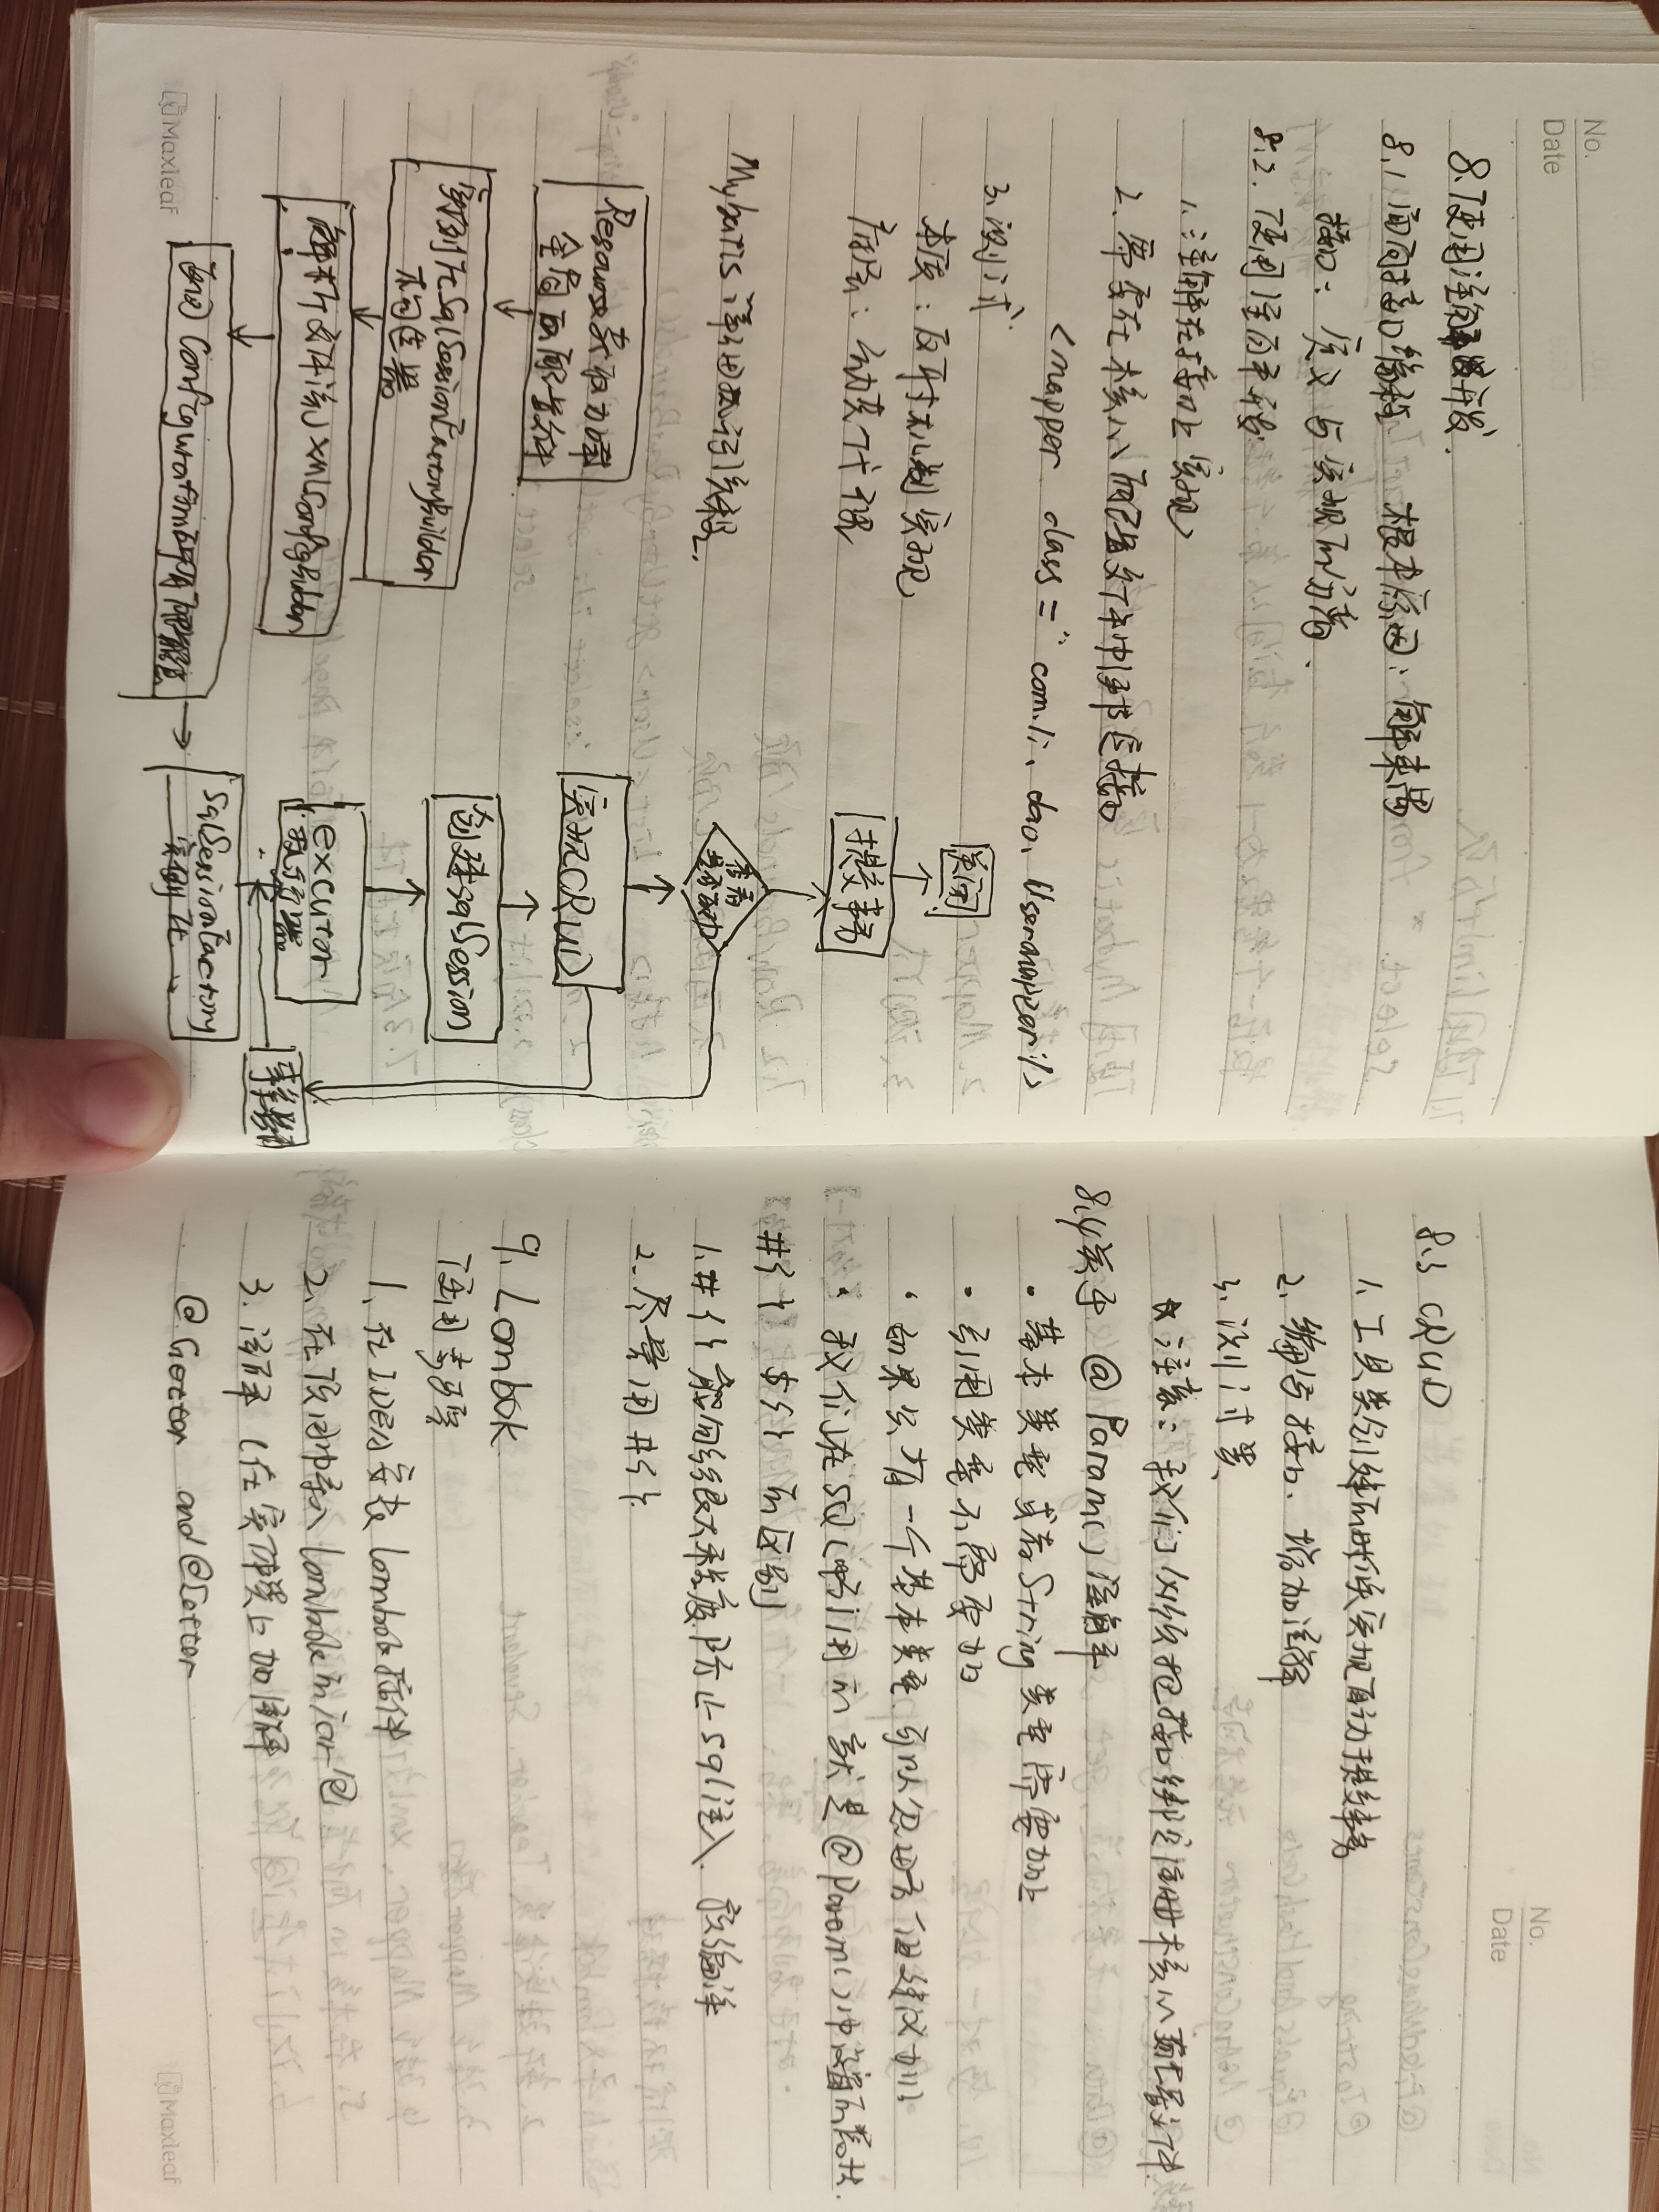 No.
Date
8.使用注解开发.
8.1 面向接口编程 根本原因:解耦
接口: 定义与实现的分离.
8.2.使用注解开发
1.注解在接口上实现
2.需要在核心配置文件中绑定接口
<mapper class="com.li.dao.Usermapper"/>
3.测试
本质:反射机制实现
底层:动态代理
Mybatis详细执行流程.
Resources获取加载
全局配置文件
实例化SqlSessionFactoryBuilder
构造器
解析文件流XMLConfigBuilder
Configuration所有配置信息
SqlSessionFactory
实例化
excutor
执行器
创建sqlSession
实现CRUD
查看
是否成功
提交事务
关闭
事务回滚
Maxleaf
No.
Date
8.3 CRUD
1.工具类创建的时候实现自动提交事务
2.编写接口、增加注解
3.测试类
注意:我们必须把接口绑定注册到核心配置文件
8.4关于@Param()注解
·基本类型或者String类型需要加上
·引用类型不需要加
·如果只有一个基本类型 可以忽略 但建议加上
·我们在SQL中引用的就是@Param()中设置的属性.
#{} ${}的区别
1.#{}能够很大程度防止sql注入、预编译
2.尽量用#{}
9.Lombok
使用步骤
1.在IDEA安装Lombok插件
2.在项目中导入lombok的jar包
3.注解(在实体类上加注解)
@Getter and @Setter
Maxleaf